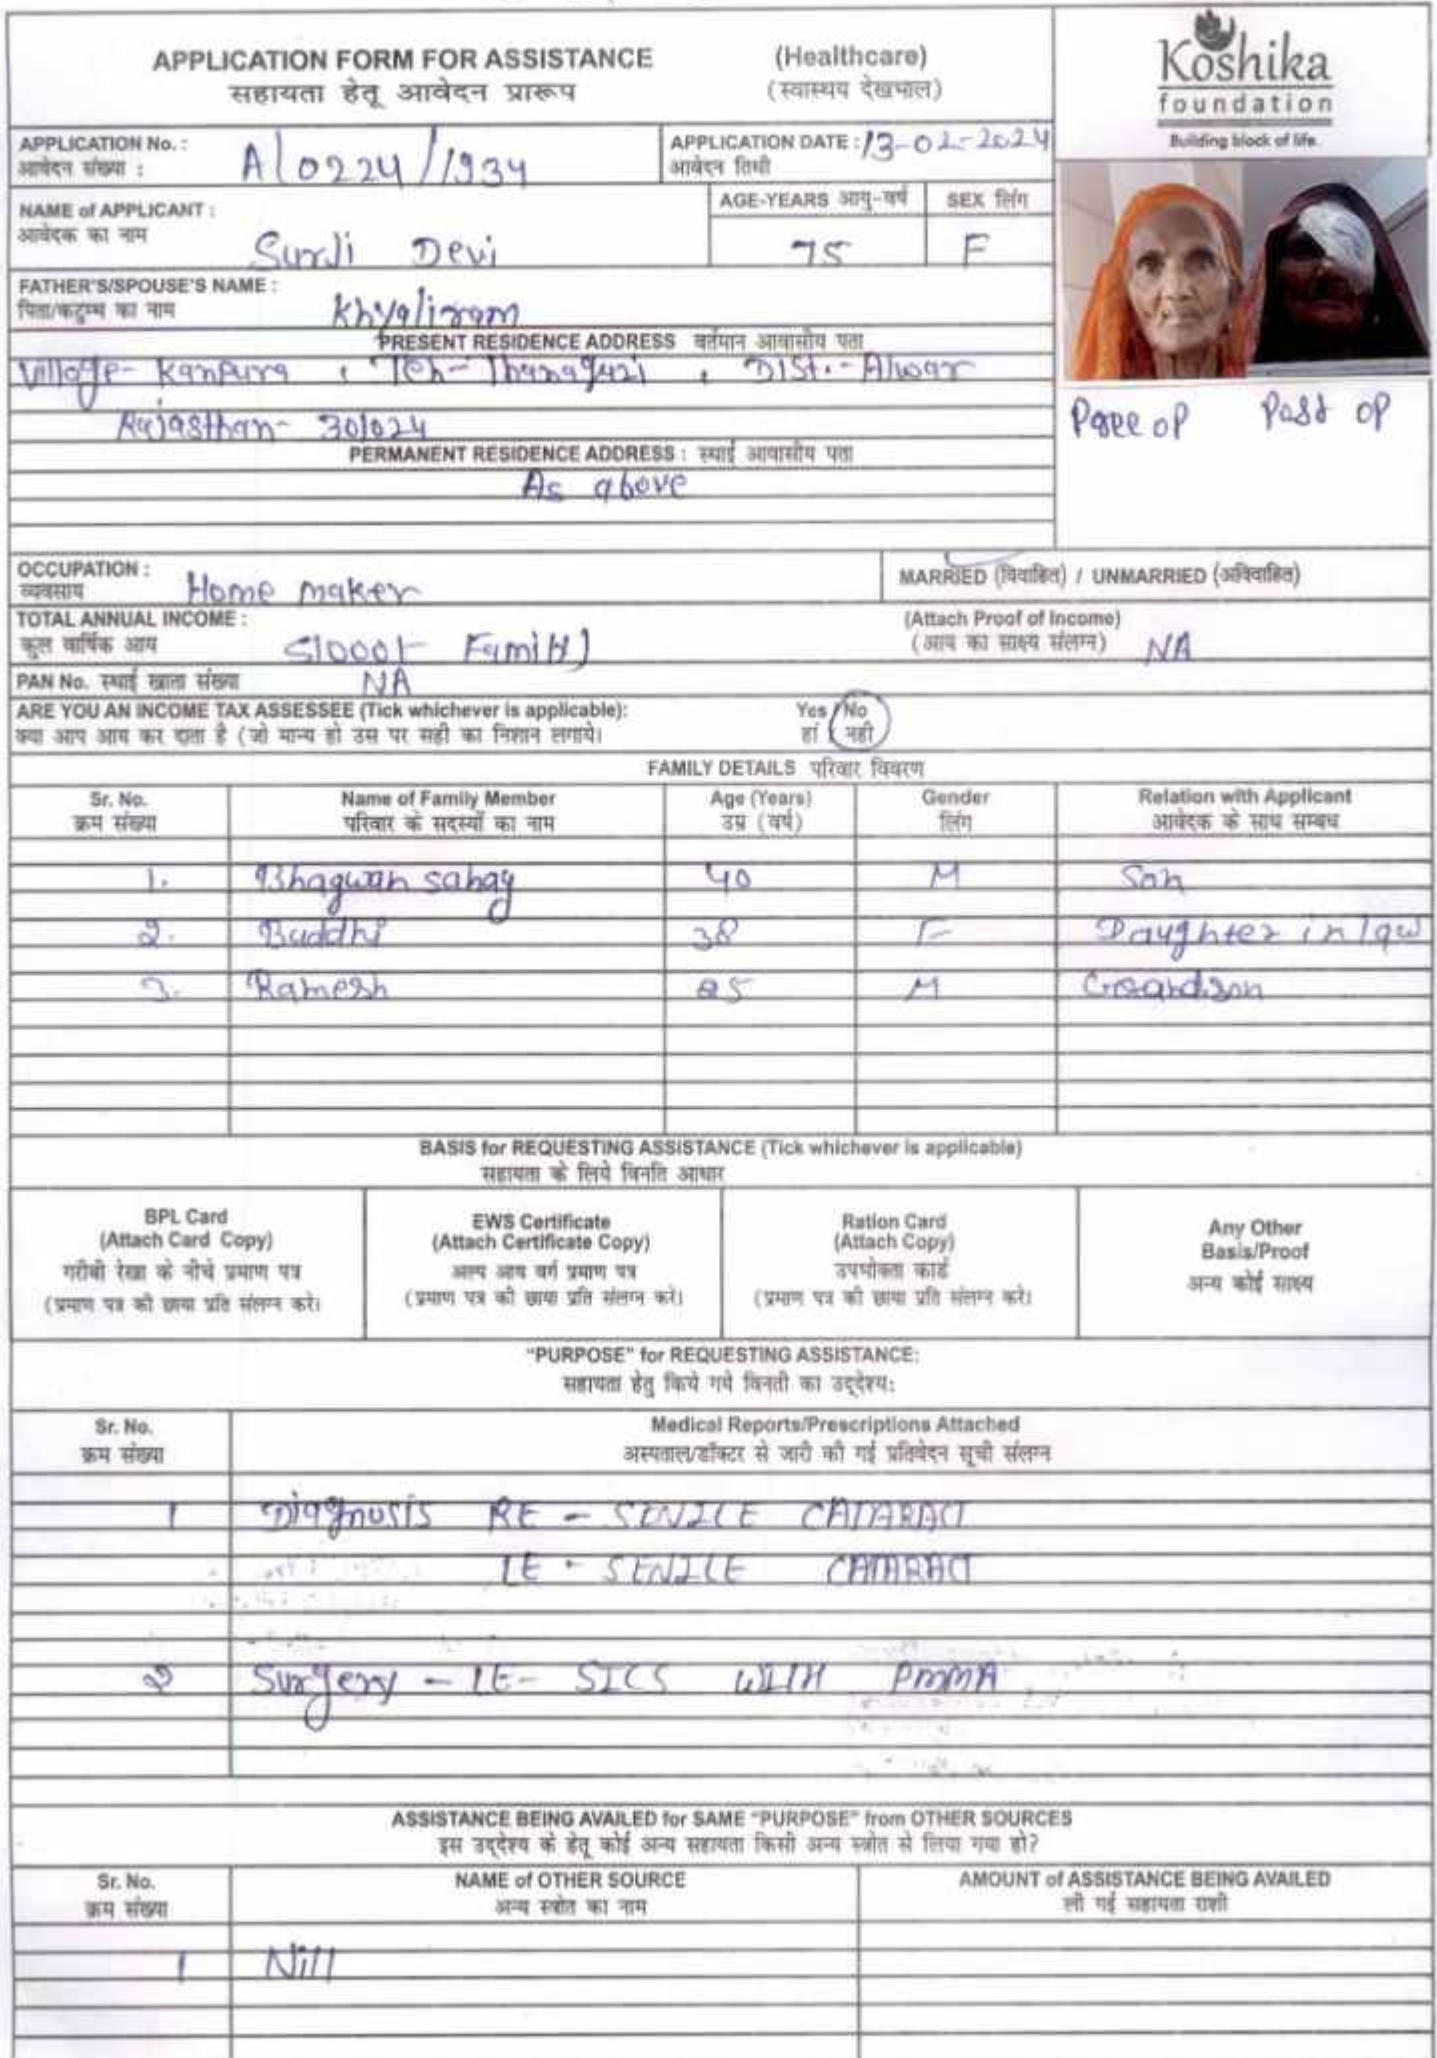 APPLICATION FORM FOR ASSISTANCE (Healthcare)
सहायता हेतू आवेदन प्रारूप (स्वास्थय देखभाल)
Koshika
foundation
Building block of life.
APPLICATION No. : A/0224/1934
आवेदन संख्या :
APPLICATION DATE : 13-02-2024
आवेदन तिथी
NAME of APPLICANT :
आवेदक का नाम
Surji Devi
AGE-YEARS आयु-वर्ष
75
SEX लिंग
F
FATHER'S/SPOUSE'S NAME :
पिता/कटुम्ब का नाम
Khyaliram
Pree op Post op
PRESENT RESIDENCE ADDRESS वर्तमान आवासीय पता
Village- Kanpura , Teh- Thanagazi , Dist.- Alwar
Rajasthan- 301024
PERMANENT RESIDENCE ADDRESS : स्थाई आवासीय पता
As above
OCCUPATION :
व्यवसाय
Home maker
MARRIED (विवाहित) / UNMARRIED (अविवाहित)
TOTAL ANNUAL INCOME : (Attach Proof of Income)
कुल वार्षिक आय (आय का साक्ष्य संलग्न) NA
51000/- Family
PAN No. स्थाई खाता संख्या NA
ARE YOU AN INCOME TAX ASSESSEE (Tick whichever is applicable): Yes / No
क्या आप आय कर दाता है (जो मान्य हो उस पर सही का निशान लगाये। हां / नही
FAMILY DETAILS परिवार विवरण
Sr. No. Name of Family Member Age (Years) Gender Relation with Applicant
क्रम संख्या परिवार के सदस्यों का नाम उम्र (वर्ष) लिंग आवेदक के साथ सम्बध
1. Bhagwan sahay 40 M Son
2. Buddhi 38 F Daughter in law
3. Ramesh 25 M Grandson
BASIS for REQUESTING ASSISTANCE (Tick whichever is applicable)
सहायता के लिये विनति आधार
BPL Card
(Attach Card Copy)
गरीबी रेखा के नीचे प्रमाण पत्र
(प्रमाण पत्र की छाया प्रति संलग्न करे।
EWS Certificate
(Attach Certificate Copy)
अल्प आय वर्ग प्रमाण पत्र
(प्रमाण पत्र की छाया प्रति संलग्न करे।
Ration Card
(Attach Copy)
उपभोक्ता कार्ड
(प्रमाण पत्र की छाया प्रति संलग्न करे।
Any Other
Basis/Proof
अन्य कोई साक्ष्य
"PURPOSE" for REQUESTING ASSISTANCE:
सहायता हेतु किये गये विनती का उद्देश्य:
Sr. No. Medical Reports/Prescriptions Attached
क्रम संख्या अस्पताल/डॉक्टर से जारी की गई प्रतिवेदन सूची संलग्न
1 Diagnosis RE - SENILE CATARACT
LE - SENILE CATARACT
2 Surgery - LE- SICS WITH PMMA
ASSISTANCE BEING AVAILED for SAME "PURPOSE" from OTHER SOURCES
इस उद्देश्य के हेतू कोई अन्य सहायता किसी अन्य स्त्रोत से लिया गया हो?
Sr. No. NAME of OTHER SOURCE AMOUNT of ASSISTANCE BEING AVAILED
क्रम संख्या अन्य स्त्रोत का नाम ली गई सहायता राशी
1 Nill